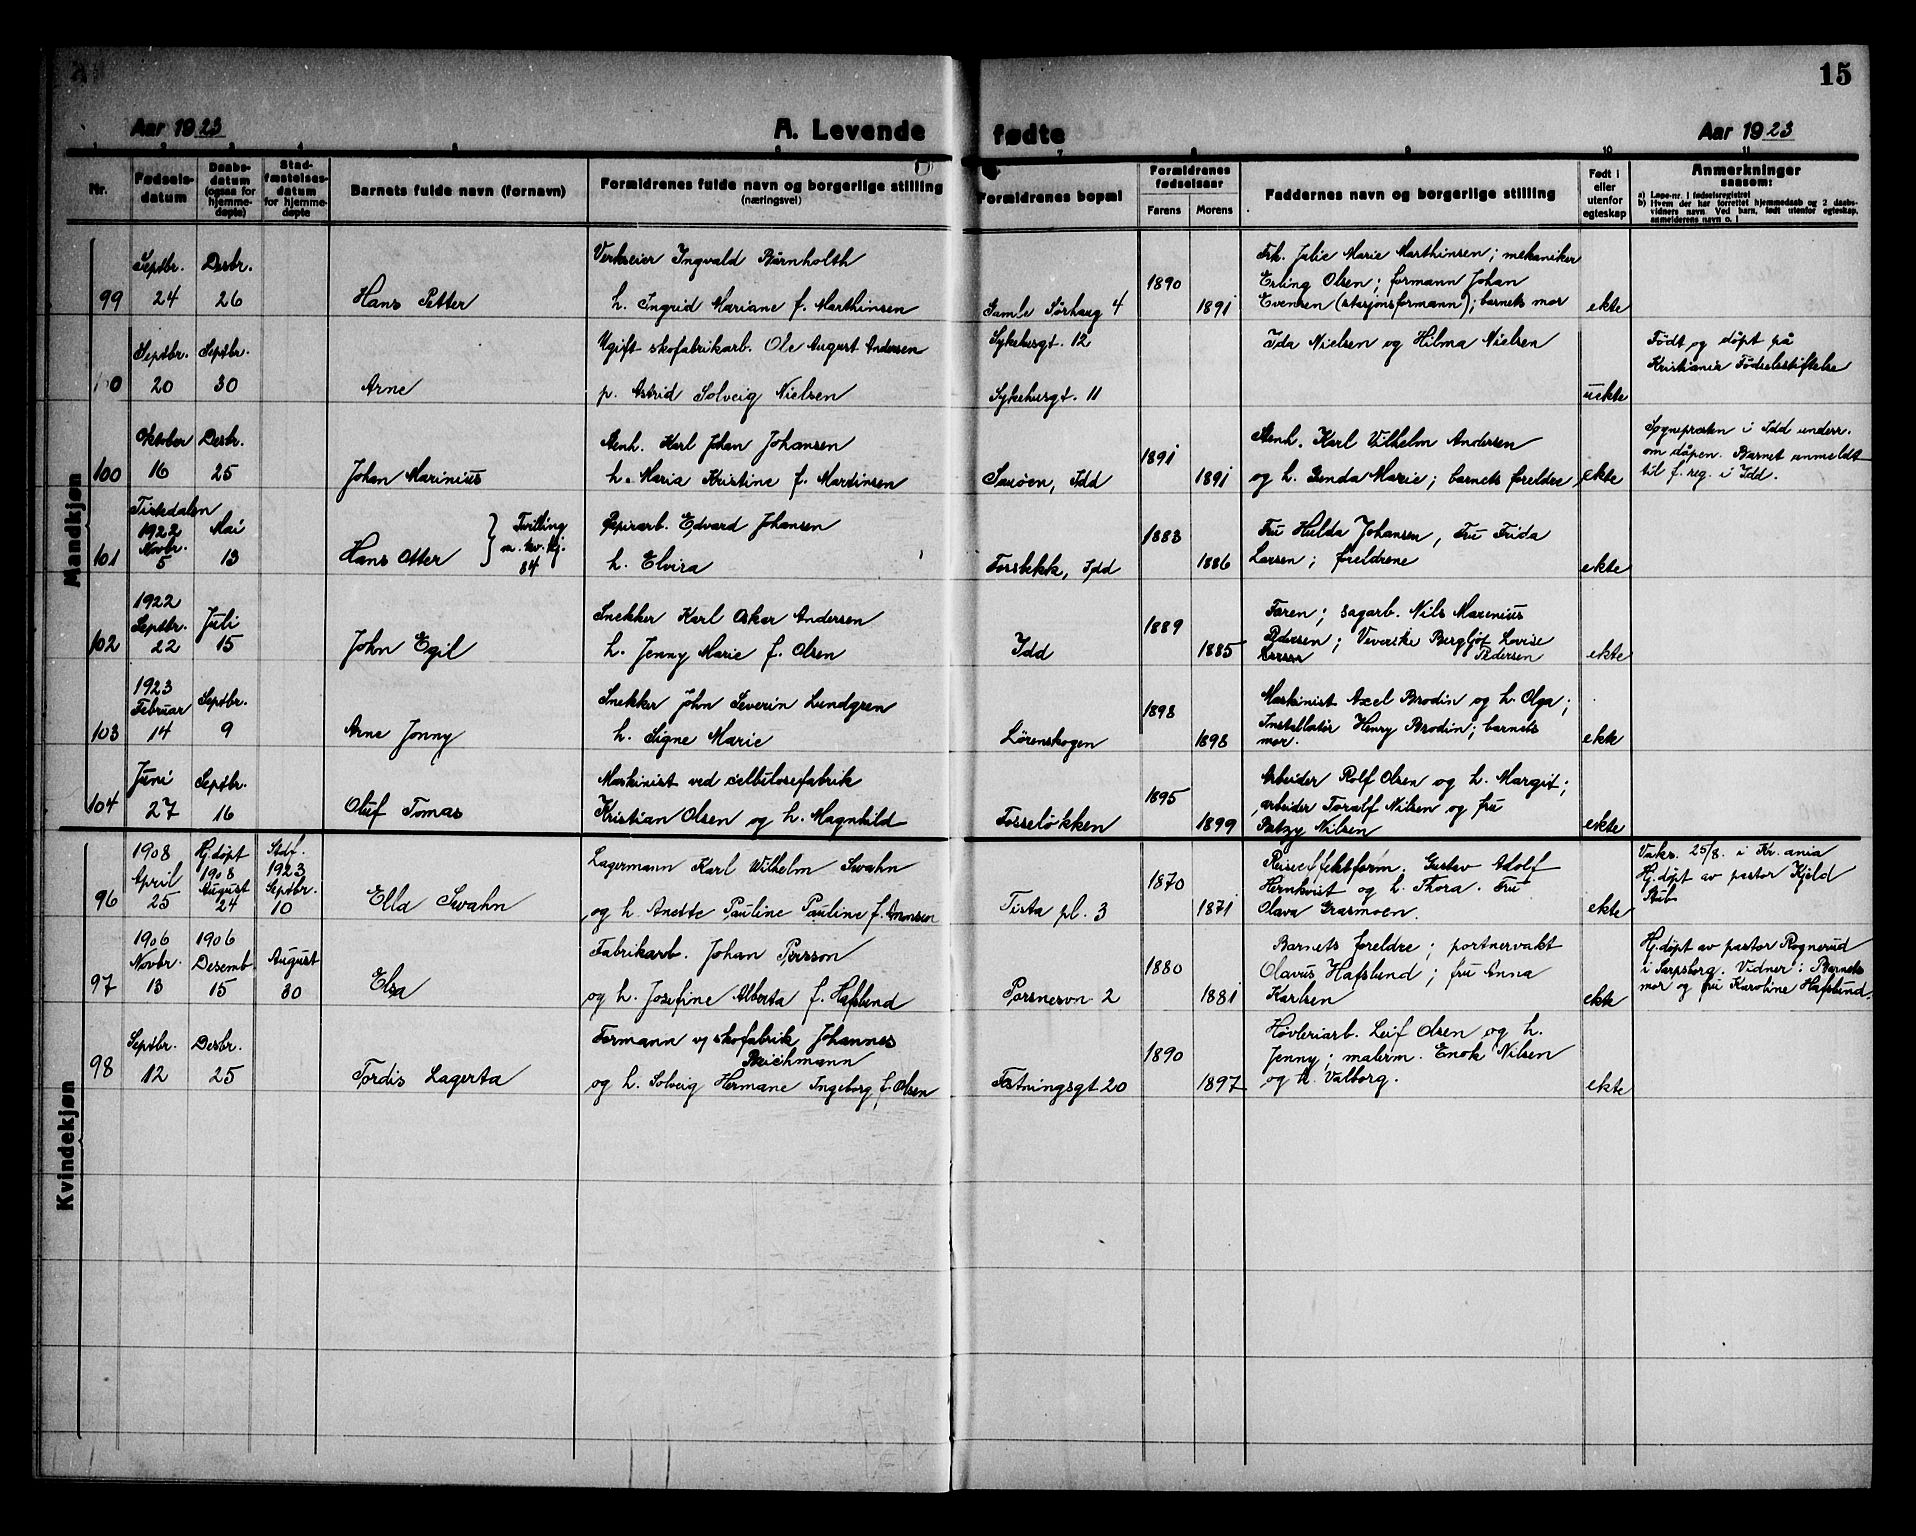 15
Aar 1923
A. Levende fødte
Aar 1923
1 2 3 4 5 6 7 8 9 10 11
Nr.
Fødsels-
datum
Daabs-
datum
(ogsaa for
hjemme-
døpte)
Stad-
fæstelses-
datum
for hjemme-
døpte
Barnets fulde navn (fornavn)
Forældrenes fulde navn og borgerlige stilling
(næringsvei)
Forældrenes bopæl
Forældrenes
fødselsaar
Farens Morens
Faddernes navn og borgerlige stilling
Født i
eller
utenfor
egteskap
Anmerkninger
saasom:
a) Løpe-nr. i fødselsregistret
b) Hvem der har forrettet hjemmedaab og 2 daabs-
vidners navn. Ved barn, født utenfor egteskap,
anmelderens navn o. l
Mandkjøn
99
Septbr.
24
Desbr.
26
Hans Petter
Verkseier Ingvald Bärnholth
h. Ingrid Mariane f. Marthinsen
Gamle Sørhaug 4
1890
1891
Frk. Julie Marie Marthinsen; mekaniker
Erling Olsen; formann Johan
Evensen (stasjonsformann); barnets mor
ekte
100
Septbr.
20
Septbr.
30
Arne
Ugift skofabrikarb. Ole August Andersen
p. Astrid Solveig Nielsen
Sykehusgt. 12
Sykehusgt. 11
Ida Nielsen og Hilma Nielsen
uekte
Født og døpt på
Kristiania Fødselsstiftelse
100
Oktober
16
Desbr.
25
Johan Marinius
Stenh. Karl Johan Johansen
h. Maria Kristine f. Martinsen
Sauøen, Idd
1891
1891
Stenh. Karl Vilhelm Andersen
og h. Gunda Marie; barnets foreldre
ekte
Sognepresten i Idd underr.
om dåpen. Barnet anmeldt
til f. reg. i Idd.
101
Tistedalen
1922
Novbr.
5
Mai
13
Hans Otter
Tvilling
m. kv. kj.
84
Papirarb. Edvard Johansen
h. Elvira
Fossbekk, Idd
1883
1886
Fru Hulda Johansen, Fru Frida
Larsen; foreldrene
ekte
102
1922
Septbr.
22
Juli
15
John Egil
Snekker Karl Oskar Andersen
h. Jenny Marie f. Olsen
Idd
1889
1885
Faren; sagarb. Nils Marenius
Pedersen; Veverske Bergljot Lovise
Pedersen
ekte
103
1923
Februar
14
Septbr.
9
Arne Jonny
Snekker John Severin Lundgren
h. Signe Marie
Lørenskogen
1898
1898
Maskinist Axel Brodin og h. Olga;
Installatør Henry Brodin; barnets
mor.
ekte
104
Juni
27
Septbr.
16
Oluf Tomas
Maskinist ved cellulosefabrik
Kristian Olsen og h. Magnhild
Fosseløkken
1895
1899
Arbeider Rolf Olsen og h. Margit;
arbeider Toralf Nilsen og fru
Betzy Nilsen
ekte
Kvindekjøn
96
1908
April
25
Hj.døpt
1908
August
24
Stdf.
1923
Septbr.
10
Ella Swahn
Lagermann Karl Wilhelm Swahn
og h. Anette Pauline Pauline f. Amnsen
Tista pl. 3
1870
1871
Reiseeffektsform. Gustav Adolf
Hernkvist og h. Thora. Fru
Olava Grasmoen.
ekte
Vaks. 25/8. i Kr.ania
Hj.døpt av pastor Kjeld
Stub
97
1906
Novbr.
13
1906
Desemb.
15
August
30
Elsa
Fabrikarb. Johan Persson
og h. Josefine Alberta f. Hafslund
Porsnesvn 2
1880
1881
Barnets foreldre; portnervakt
Olavus Hafslund; fru Anna
Karlsen
ekte
Hj.døpt av pastor Rognerud
i Sarpsborg. Vidner: Barnets
mor og fru Karoline Hafslund.
98
Septbr.
12
Desbr.
25
Tordis Lagerta
Formann v/ skofabrik Johannes
Beichmann
og h. Solveig Hermane Ingeborg f. Olsen
Festningsgt 20
1890
1897
Høvleriarb. Leif Olsen og h.
Jenny; malerm. Enok Nilsen
og h. Valborg.
ekte